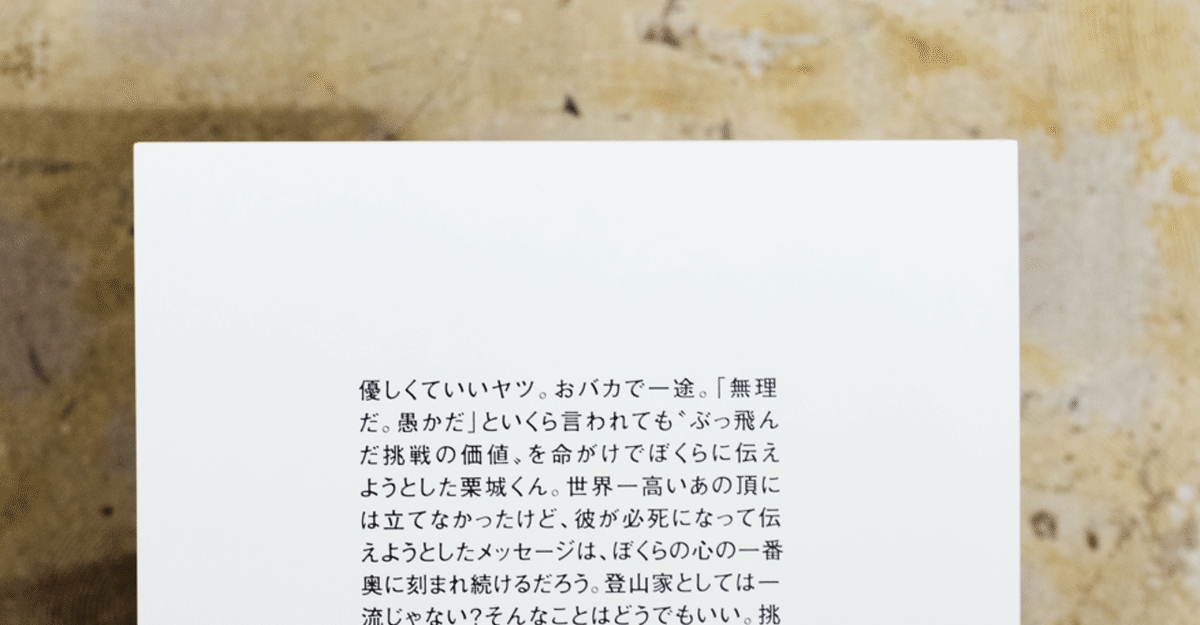 優しくていいヤツ。おバカで一途。「無理
だ。愚かだ」といくら言われても〝ぶっ飛ん
だ挑戦の価値〟を命がけでぼくらに伝え
ようとした栗城くん。世界一高いあの頂に
は立てなかったけど、彼が必死になって伝
えようとしたメッセージは、ぼくらの心の一番
奥に刻まれ続けるだろう。登山家としては一
流じゃない?そんなことはどうでもいい。挑